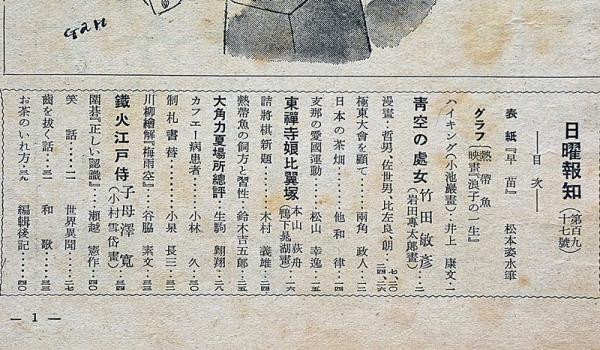 日曜報知 (第百九十七號)
——目次——
表紙『早苗』…………松本姿水筆
グラフ (熱帶魚 映畫『浪子の一生』
ハイキング(小池巖畫)…井上康文…一
青空の處女 竹田敏彦 (岩田專太郎畫)…二
漫畫・哲男、佐世男、比左良、朗…七、二〇 二四、二六
極東大會を顧て……兩角政人…一三
日本の茶畑…………他和律…一四
支那の愛國運動……松山幸逸…一五
東禪寺娘比翼塚 本山荻舟 (鴨下晁湖畫)…一六
詰將棋新題…………木村義雄…二四
熱帶魚の飼方と習性・鈴木吉五郎…二五
大角力夏場所總評・生駒翺翔…二六
カフエー病患者……小林久…三〇
制札書替……………小泉長三…三二
川柳繪解『梅雨空』…谷脇素文…三三
鐵火江戸侍 子母澤寛 (小村雪岱畫)…三四
圍碁『正しい認識』…瀬越憲作…四〇
笑話…二一 世界異聞…二七
齒を拔く話…三一 和歌…三三
お茶のいれ方…三九 編輯後記…四〇
— 1 —